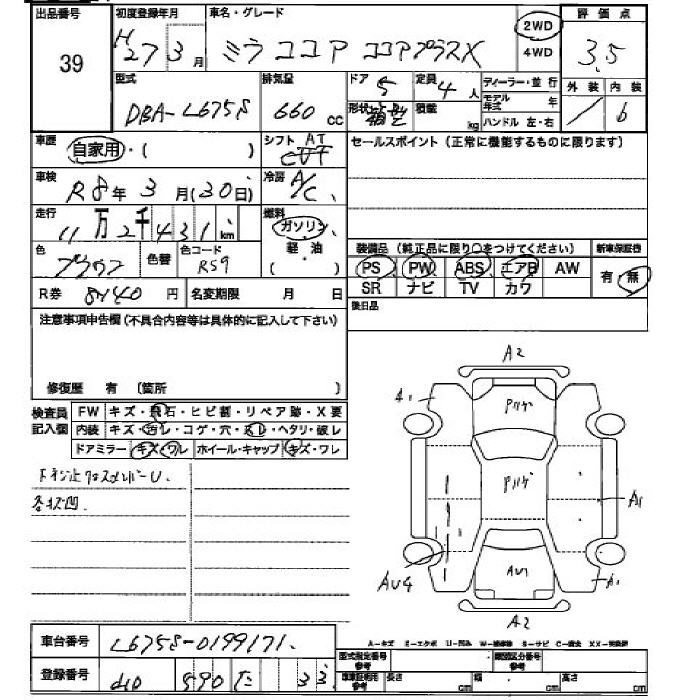 出品番号 初度登録年月 車名・グレード 評価点
39 H27 3月 ミラ ココア ココアプラスX 2WD 4WD 3.5
型式 排気量 ドア 5 定員 4人 ディーラー・並行 外装 内装
DBA-L675S 660cc 形状 箱型 積載 kg モデル年式 年 / 6
ハンドル 左・右
車歴 自家用・( ) シフト AT CVT セールスポイント(正常に機能するものに限ります)
車検 R8年3月(30日) 冷房 A/C
走行 11万2千431km 燃料 ガソリン 軽油 ( )
色 ブラウン 色替 色コード R59 装備品(純正品に限り○をつけてください) 新車保証書
PS PW ABS エアB AW 有・無
SR ナビ TV カワ
R券 8140円 名変期限 月 日 後日品
注意事項申告欄(不具合内容等は具体的に記入して下さい)
修復歴 有 〔箇所 〕
検査員記入欄 FW キズ・飛石・ヒビ割・リペア跡・X要
内装 キズ・汚レ・コゲ・穴・スレ・ヘタリ・破レ
ドアミラー キズ・ワレ ホイール・キャップ キズ・ワレ
下キジ止クロスメンバーU.
各材凹.
A2
A1
Pハゲ
Pハゲ
A1
AU4
AU1
A1
A2
A-キズ E-エクボ U-凹み W-補修跡 S-サビ C-腐食 XX-交換済
車台番号 L675S-0199171.
型式指定番号 参考 類別区分番号 参考
登録番号 590 33
車庫証明用 参考 長さ cm 幅 cm 高さ cm